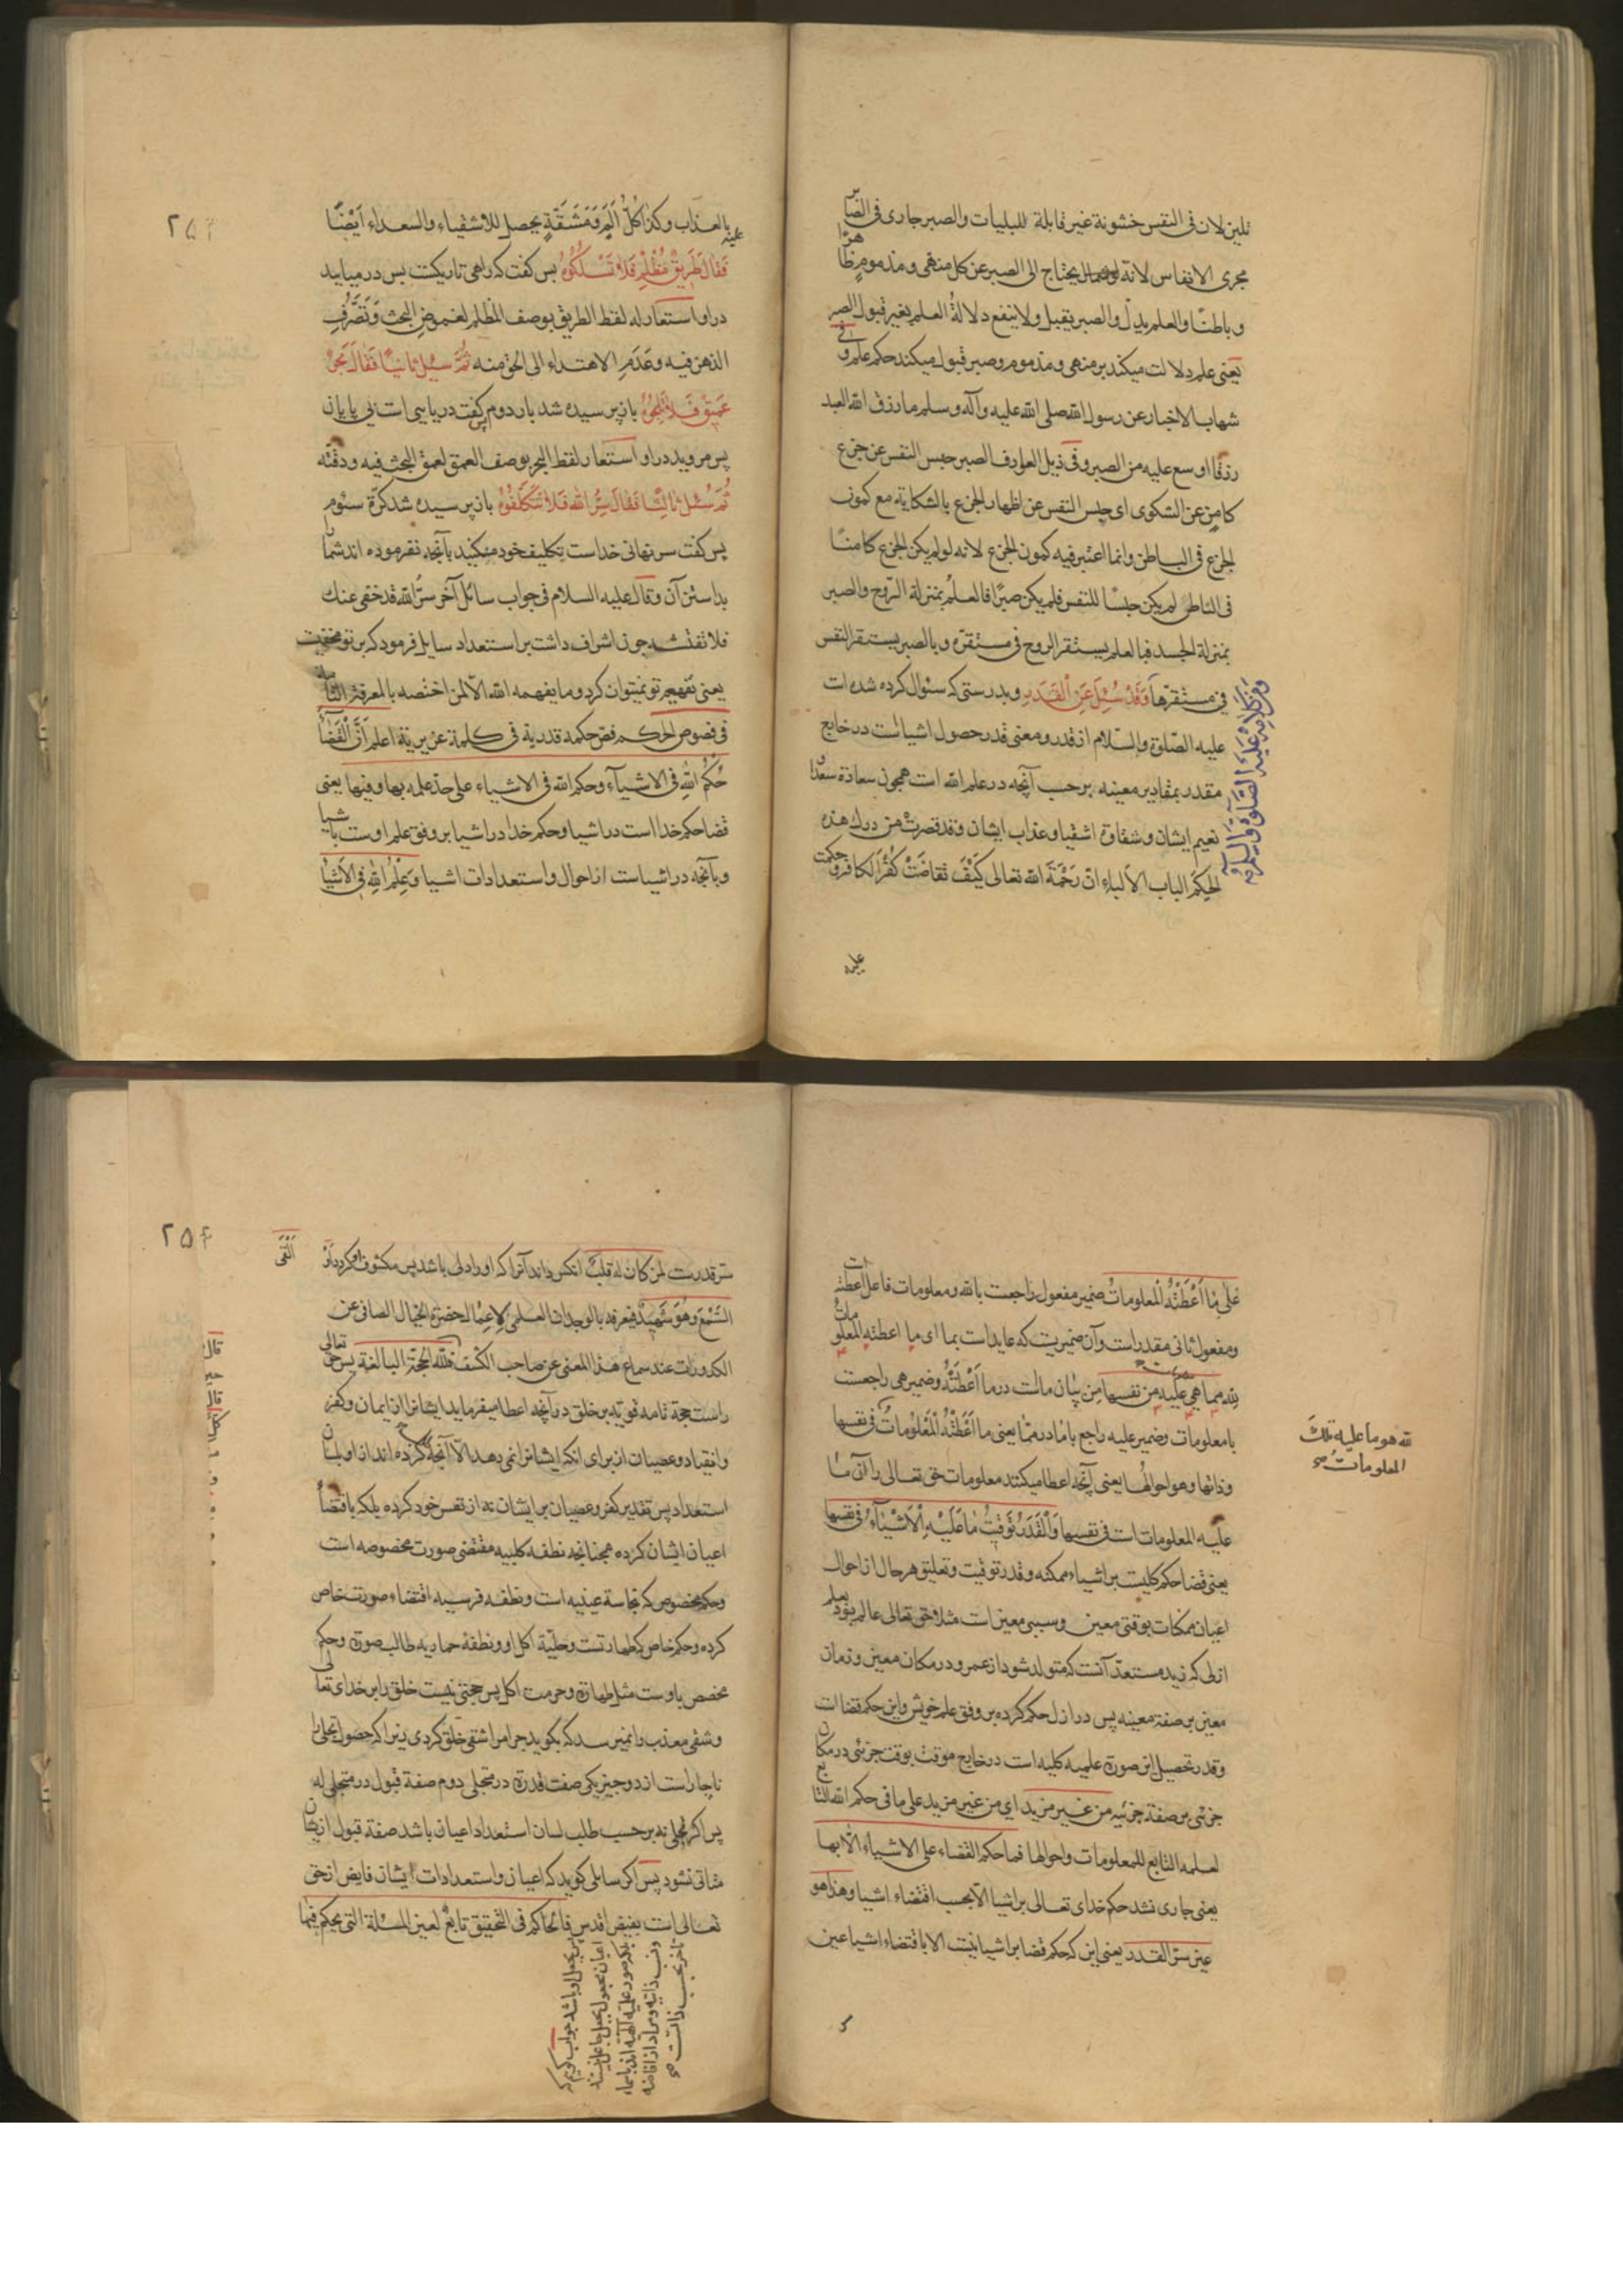 تلین لان فی النفس خشونة غیر قابلة للبلیات والصبر جاری فی الصابر
مجری الانفاس لانه یحتاج الی الصبر عن کل منهی و مذموم ظاهرًا
و باطنًا والعلم یدلّ والصبر یقبل ولا ینفع دلالةُ العلم بغیر قبول الصبر
یعنی علم دلالت میکند بر منهی و مذموم و صبر قبول میکند حکم علم وفی
شهاب الاخبار عن رسول الله صلی الله علیه وآله وسلم ما رزق الله العبد
رزقا اوسع علیه من الصبر وفی ذیل العوارف الصبر حبس النفس عن جزع
کامن عن الشکوی ای حبس النفس عن اظهار الجزع بالشکایة مع کمون
الجزع فی الباطن وانما اعتبر فیه کمون الجزع لانه لو لم یکن الجزع کامنًا
فی الباطن لم یکن حبسًا للنفس فلم یکن صبرًا فالعلم بمنزلة الرّوح والصبر
بمنزلة الجسد فبالعلم یستقر الروح فی مستقرّه وبالصبر یستقر النفس
فی مستقرّها وَقَدْ سُئِلَ عَنِ الْقَدَرِ و بدرستی که سئوال کرده شده است
علیه الصّلوة والسّلام از قدر و معنی قدر حصول اشیا است در خارج
مقدر بمقادیر معینه بر حسب آنچه در علم الله است همچون سعادة سعدا
نعیم ایشان و شقاوة اشقیا و عذاب ایشان وقد قصرت من درک هذه
الحکم الباب الألباء انّ رَحْمَةَ الله تعالی کَیْفَ تقاضَتْ کُفْرَ الکافر وحکمت
ومن کلامه علیه الصلوة والسلام
علیه
۲۵۳
بالعذاب وکذا کُلُّ اَلَمٍ وَمَشَقَّةٍ یحصل للاشقیاء والسعداء اَیْضًا
علیه
فَقَالَ طَرِیقٌ مُظْلِمٌ فَلا تَسْلُکُوهُ پس کفت که راهی تاریکست پس در میایید
درو استعار له لفظ الطریق بوصف المظلم لغموض البحث وَتَصَرُّفِ
الذهن فیه وَعَدَمِ الاهتداء الی الحق منه ثُمَّ سُئِلَ ثانیًا فَقَالَ بَحْرٌ
عَمیقٌ فَلا تَلِجُوهُ باز پرسیده شد بار دوم پس کفت دریاسی است بی پایان
پس مروید درو استعار لفظ البحر بوصف العمق لعمق البحث فیه و دقته
ثُمَّ سُئِلَ ثالِثًا فَقَالَ سِرُّ اللهِ فَلا تَتَکَلَّفُوهُ باز پرسیده شد کرّة سئوم
پس کفت سر نهانی خداست تکلیف خود مکنید بآنچه نفرموده اند شما
بدانستن آن وقال علیه السلام فی جواب سائل آخر سرّ الله قد خفی عنک
فلا تفتشه چون اشراف داشت بر استعداد سایل فرمود که بر تو مخفیست
یعنی تفهیم تو نمیتوان کرد وما یفهمه الله الّا لمن اختصه بالمعرفة التامة
فی فصوص الحکم فص حکمة قدریة فی کلمة عزیریة اعلم اَنَّ الْقَضَاءَ
حُکْمُ اللهِ فی الاشیآءِ وحکم الله فی الاشیاء علی حدّ علمه بها وفیها یعنی
قضا حکم خدا است در اشیا وحکم خدا در اشیا بر وفق علم اوست باشیا
وبآنچه در اشیاست از احوال واستعدادات اشیا وَعِلْمُ اللهِ فی الاَشْیاءِ
علی مَا اَعْطَتْهُ الْمَعْلوماتُ ضمیر مفعول راجعست بالله ومعلومات فاعل اعطته است
ومفعول ثانی مقدر است وآن ضمیریست که عایدات بما ای ما اعطته المعلومات
لله مما هِیَ عَلَیْهِ مِن نفسها مِن بیان ماست در ما اَعْطَتْهُ وضمیر هی راجعست
بامعلومات وضمیر علیه راجع باما در ممّا یعنی ما اَعْطَتْهُ الْمَعْلُوماتُ فی نفسها
وذاتها وهو احوالها یعنی آنچه اعطا میکنند معلومات حق تعالی را آن ما
لله هو ما علیه تلک
المعلومات صح
علیه المعلومات است فی نفسها وَالْقَدَرُ تَوْقیتُ مَا عَلَیْهِ الْاَشْیَآءُ فی نفسها
یعنی قضا حکم کلیست بر اشیاء ممکنه وقدر توقیت وتعلیق هر حال از احوال
اعیان ممکنات بوقتی معین وسببی معین است مثلا حق تعالی عالم بود بعلم
ازلی که زید مستعدّ آنست که متولد شود از عمرو در مکان معین وزمان
معین بر صفة معینه پس در ازل حکم کرده بر وفق علم خویش واین حکم قضا است
وقدر تحصیل این صورة علمیه کلیه است در خارج موقت بوقت جزئی در مکان
جزئی بر صفة جزئیه من غیر مزید ای من غیر مزید علی ما فی حکم الله التابع
لعلمه التابع للمعلومات واحوالها فما حکم القضاء علی الاشیاء الّا بها
یعنی جاری نشد حکم خدای تعالی بر اشیا الّا بحسب اقتضاء اشیا وهذا هو
عین سرّ القدر یعنی این که حکم قضا بر اشیا نیست الا باقتضاء اشیا عین
۲۵۴
سرّ قدرست لمن کان له قلب انکس داند آنرا که او را دلی باشد پس مکشوف کردد او اَلْقَی
السَّمْعَ وَهُوَ شَهِیدٌ فیعرفه بالوجدان العلمی لاعمال حضرة الخیال الصافی عن
الکدورات عند سماع هذا المعنی عن صاحب الکشف فَلِلّهِ الحجّة البالغة پس حق تعالی
راست حجة تامه قویّه بر خلق در آنچه اعطا میفرماید ایشانرا از ایمان وکفر
وانقیاد وعصیان از برای انکه ایشانرا نمی دهد الّا آنچه کرده اند از او بلسان
استعداد پس تقدیر کفر وعصیان بر ایشان نه از نفس خود کرده بلکه باقتضاء
اعیان ایشان کرده همچنانچه نطفه کلبیه مقتضی صورت مخصوصه است
وحکم مخصوص که نجاسة عینیه است ونطفه فرسیه اقتضاء صورت خاص
کرده وحکم خاص که طهارتست وحلیّة اکل او ونطفهٔ حماریه طالب صورة وحکم
مخصص باوست مثل طهارة وحرمت اکل پس حجتی نیست خلق را بر خدای تعالی
وشقی معذب را نمیرسد که بکوید چرا مرا شقی خلق کردی زیرا که حصول تجلی را
ناچار است از دو چیز یکی صفت قدرة در متجلی دوم صفة قبول در متجلی له
پس اکر تجلی نه بر حسب طلب لسان استعداد اعیان باشد صفة قبول ازیشان
متاتی نشود پس اکر سایلی کوید که اعیان واستعدادات ایشان فایض از حق
تعالی است بفیض اقدس فالحاکم فی التحقیق تابعٌ لعین المسئلة التی یحکم فیها